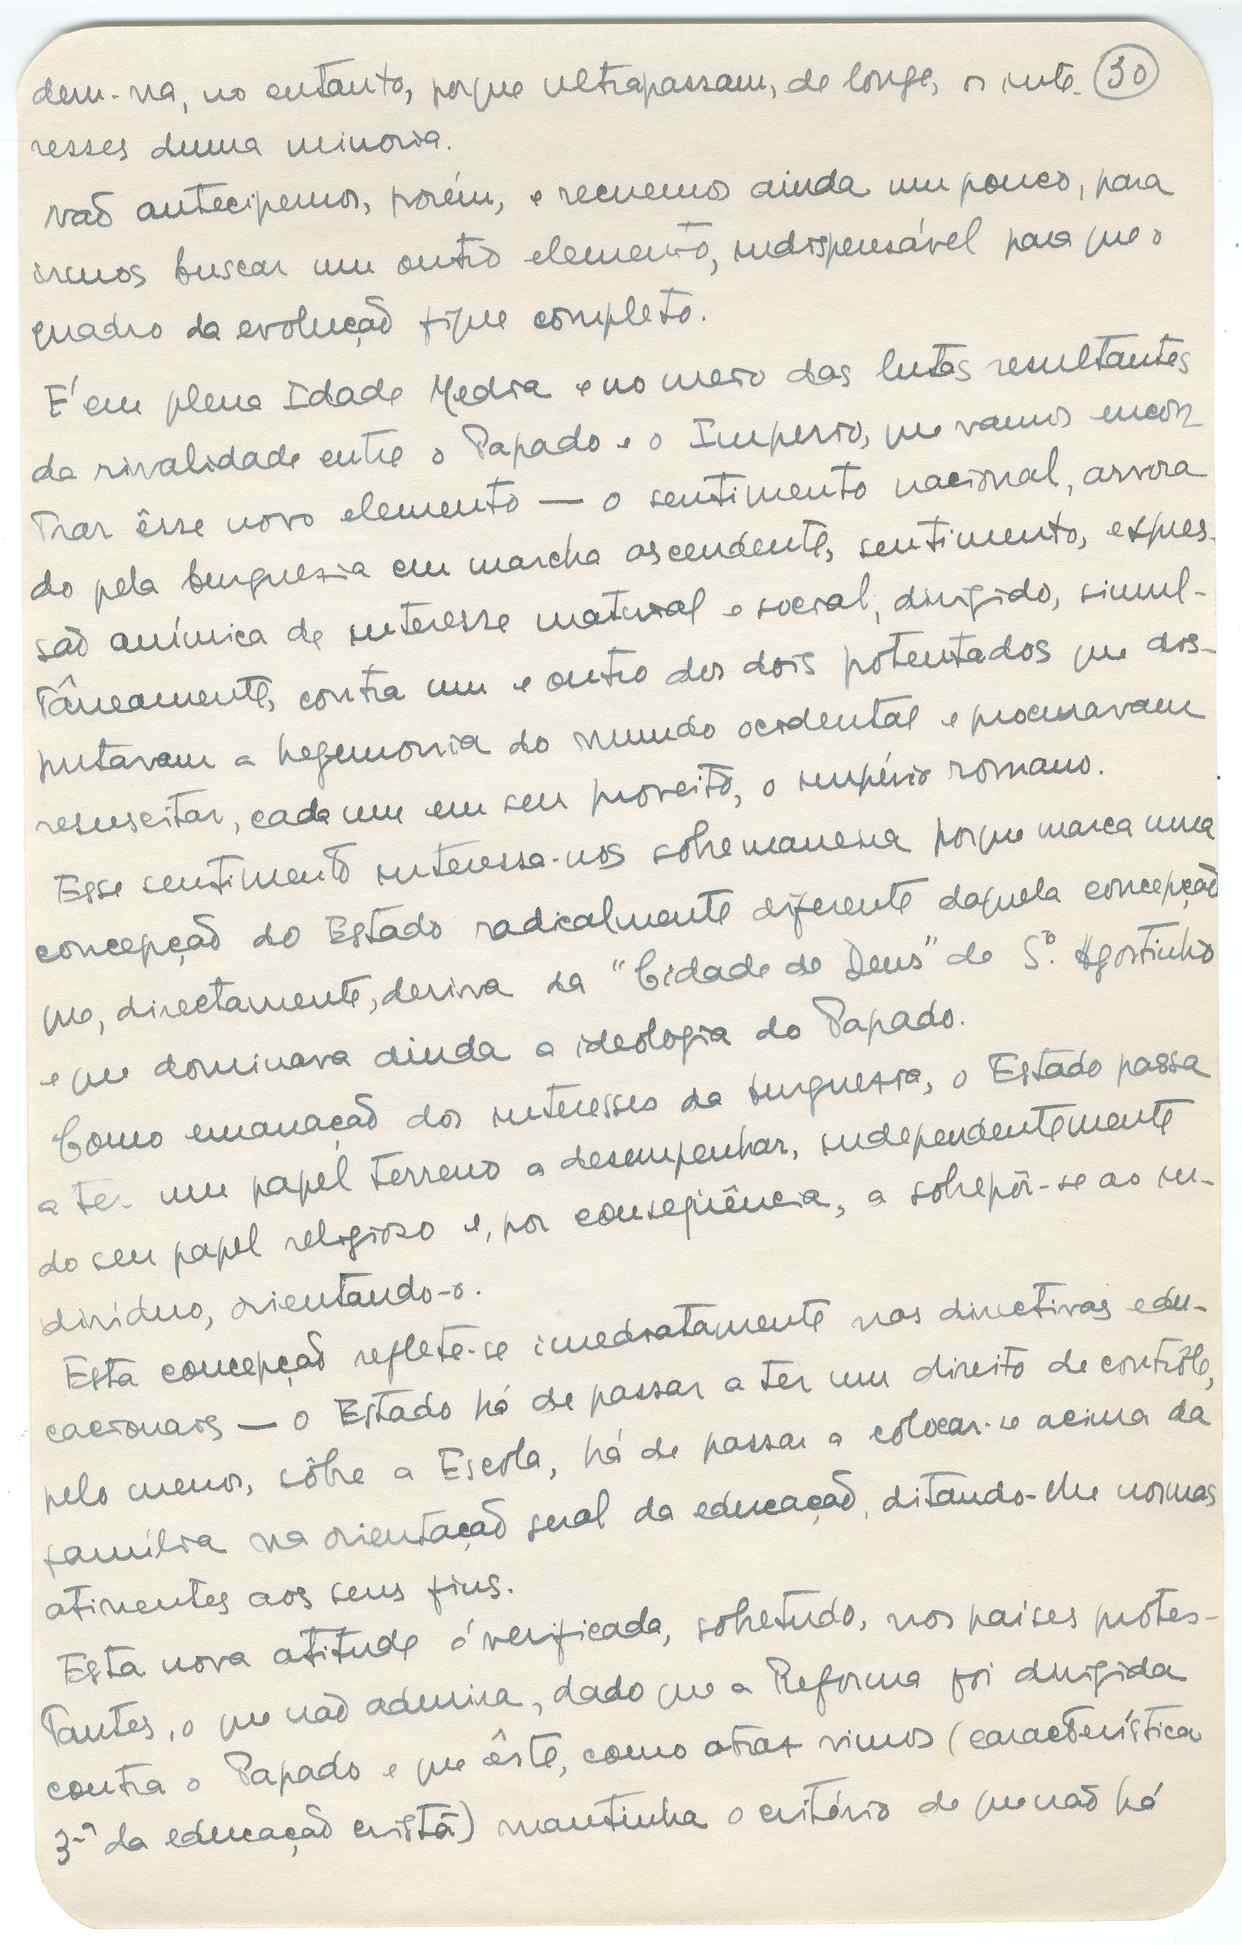 dem-na, no entanto, porque ultrapassam, de longe, os inte- 30
resses duma minoria.
Não antecipemos, porém, e recuemos ainda um pouco, para
irmos buscar um outro elemento, indispensável para que o
quadro da evolução fique completo.
É em plena Idade Media e no meio das lutas resultantes
da rivalidade entre o Papado e o Imperio, que vamos encon
trar êsse novo elemento — o sentimento nacional, arvora
do pela burguezia em marcha ascendente, sentimento, expres-
são anímica de interesse material e social, dirigido, simul-
tâneamente, contra um e outro dos dois potentados que dis-
putavam a hegemonia do mundo ocidental e procuravam
resuscitar, cada um em seu proveito, o império romano.
Esse sentimento interessa-nos sobremaneira porque marca uma
concepção do Estado radicalmente diferente daquela concepção
que, directamente, deriva da "Cidade de Deus" de Sº. Agostinho
e que dominava ainda a ideologia do Papado.
Como emanação dos interesses da burguezia, o Estado passa
a ter um papel terreno a desempenhar, independentemente
do seu papel religioso e, por conseqüência, a sobrepôr-se ao in-
divíduo, orientando-o.
Esta concepção reflete-se imediatamente nas directivas edu-
cacionais — o Estado há de passar a ter um direito de contrôle,
pelo menos, sôbre a Escola, há de passar a colocar-se acima da
família na orientação geral da educação, ditando-lhe normas
atinentes aos seus fins.
Esta nova atitude é verificada, sobretudo, nos paises protes-
tantes, o que não admira, dado que a Reforma foi dirigida
contra o Papado e que êste, como atraz vimos (característica
3ª da educação cristã) mantinha o critério de que não há